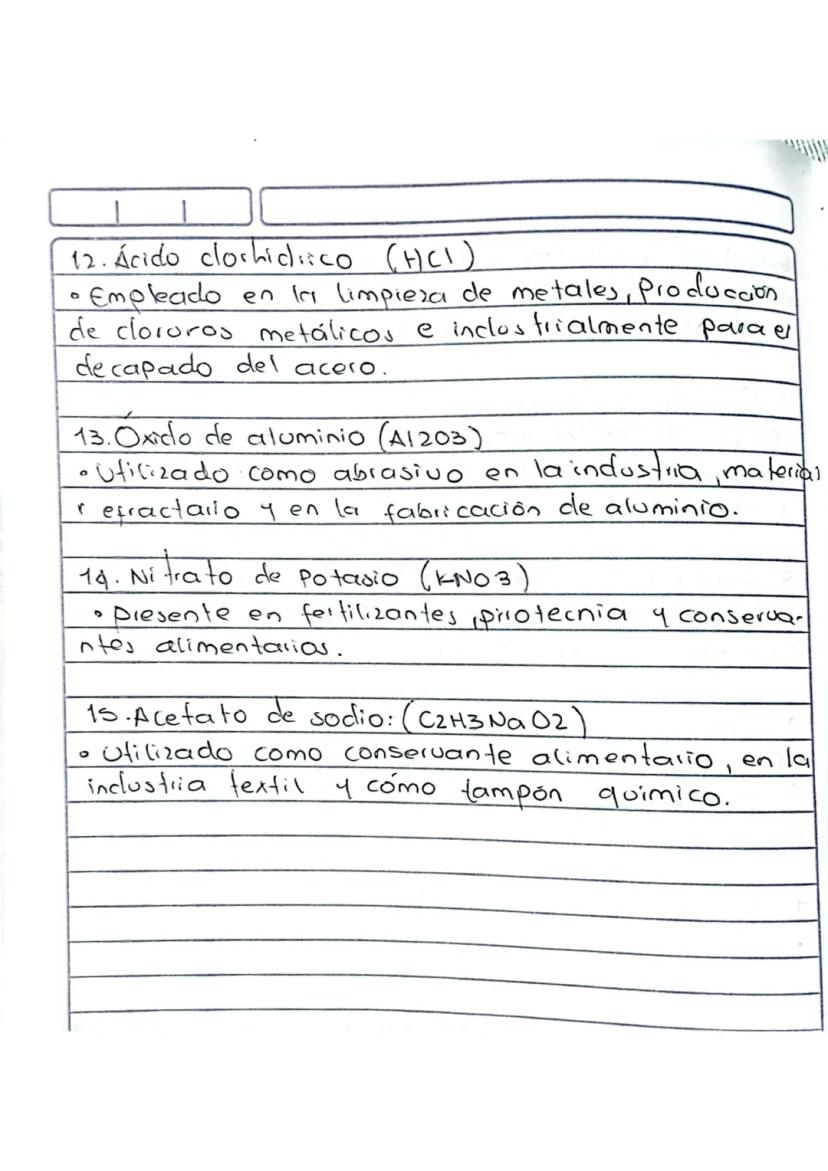 12. Ácido clorhidrico (HCl)
• Empleado en la limpieza de metales, Producción
de cloruros metálicos e industrialmente para el
decapado del acero.
13. Óxido de aluminio (Al2O3)
• Utilizado como abrasivo en la industria, material
refractario y en la fabricación de aluminio.
14. Nitrato de Potasio (KNO3)
• Presente en fertilizantes, pirotecnia y conserva-
ntes alimentarios.
15. Acetato de sodio: (C2H3NaO2)
• Utilizado como conservante alimentario, en la
industria textil y cómo tampón químico.